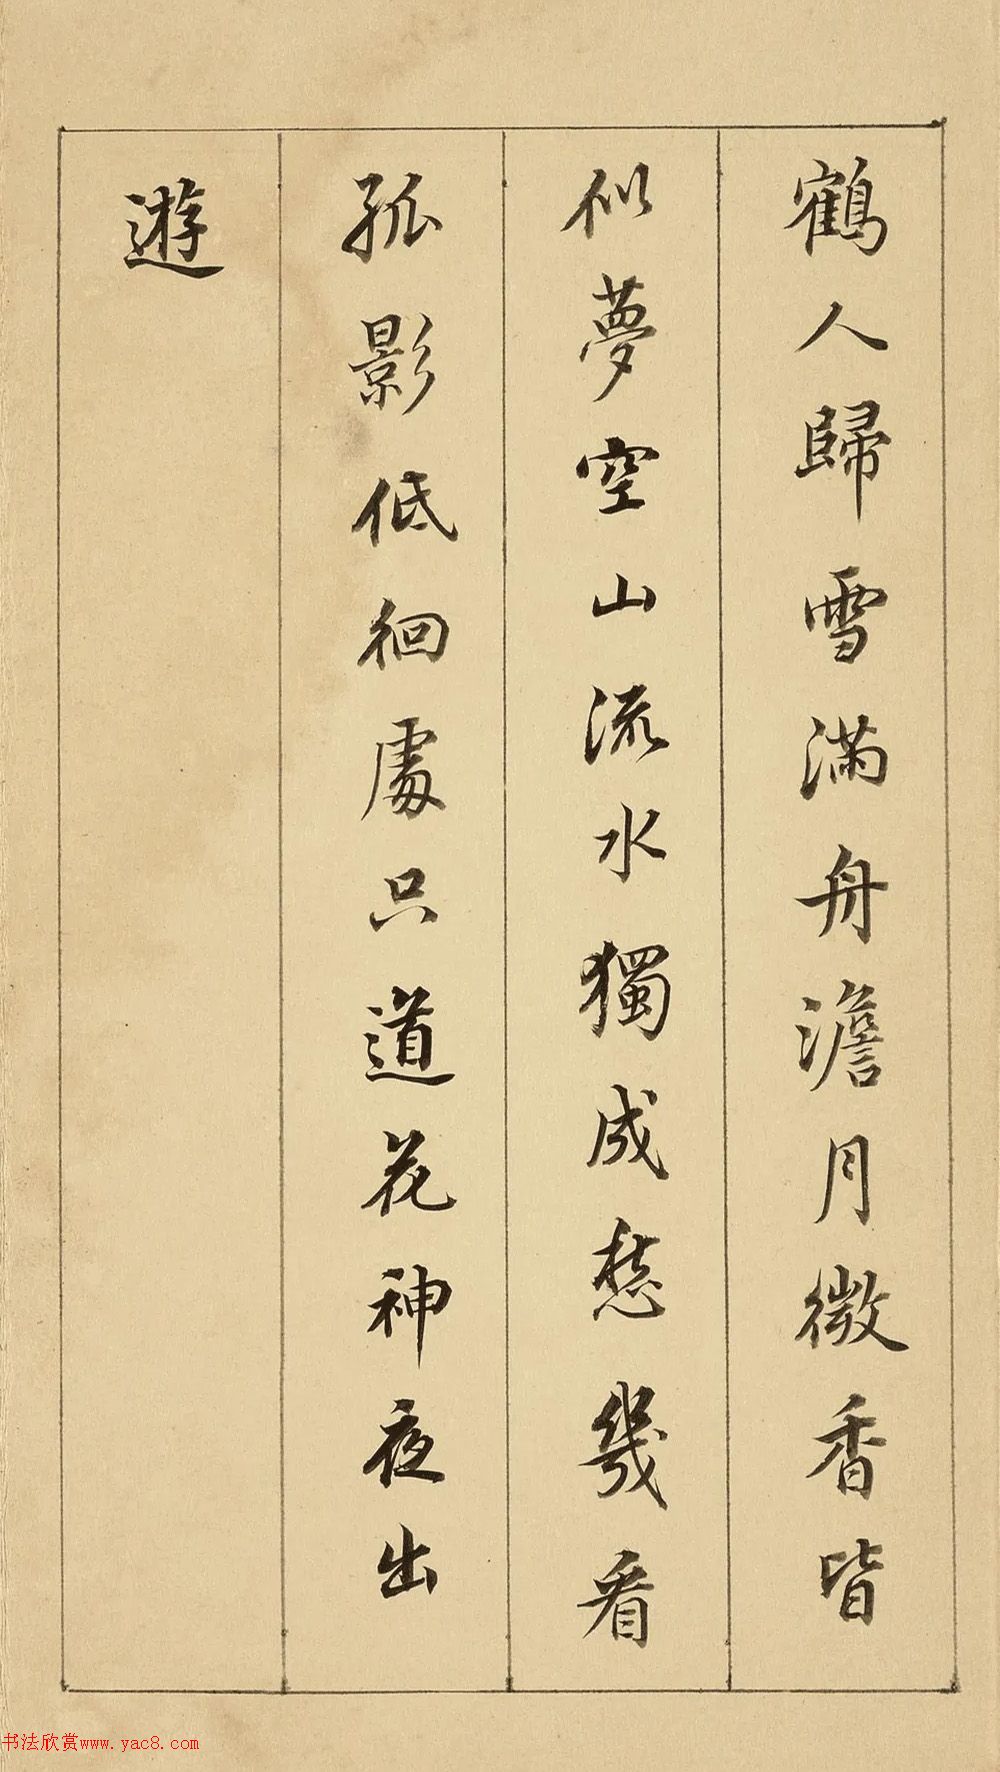 鶴人歸雪滿舟澹月微香皆
似夢空山流水獨成愁幾看
孤影低徊處只道花神夜出
遊
书法欣赏www.yac8.com